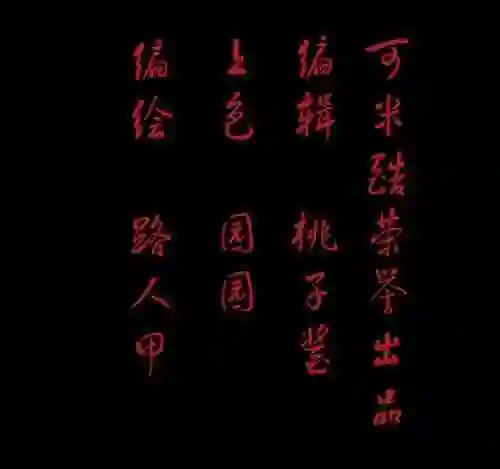 可米酷荣誉出品
编辑 桃子
上色 圆圆
编绘 路人甲